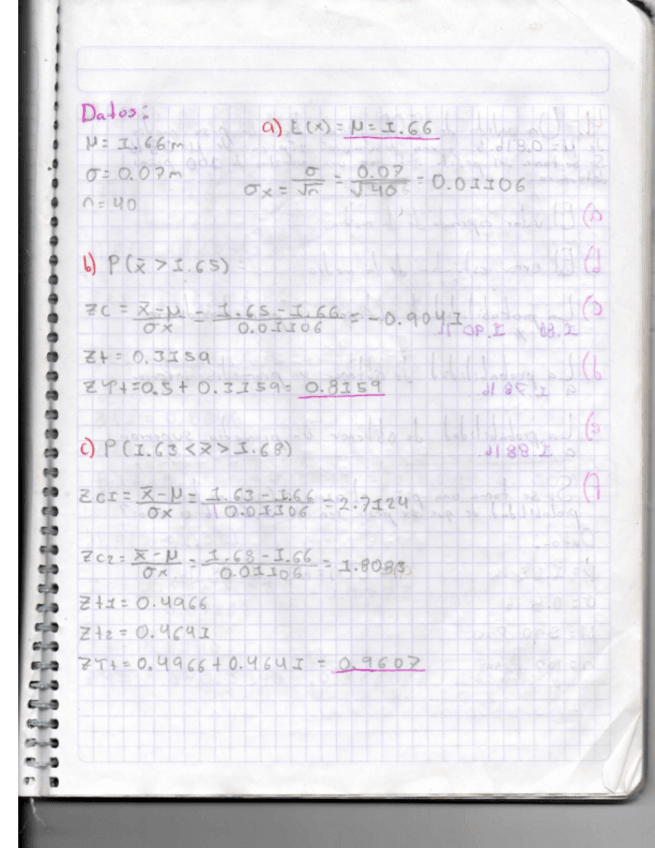 Datos:
a) E(x) = μ = 1.66
μ = 1.66m
σ = 0.07m
σx = σ/√n = 0.07/√40 = 0.01106
n = 40
b) P(x̄ > 1.65)
Zc = x̄-μ/σx = 1.65-1.66/0.01106 = -0.9041
Zt = 0.3159
ZTt=0.5 + 0.3159= 0.8159
c) P(1.63 < x̄ > 1.68)
Zc1 = x̄-μ/σx = 1.63-1.66/0.01106 = 2.7124
Zc2 = x̄-μ/σx = 1.68-1.66/0.01106 = 1.8083
Zt1 = 0.4966
Zt2 = 0.4641
ZTt = 0.4966 + 0.4641 = 0.9607